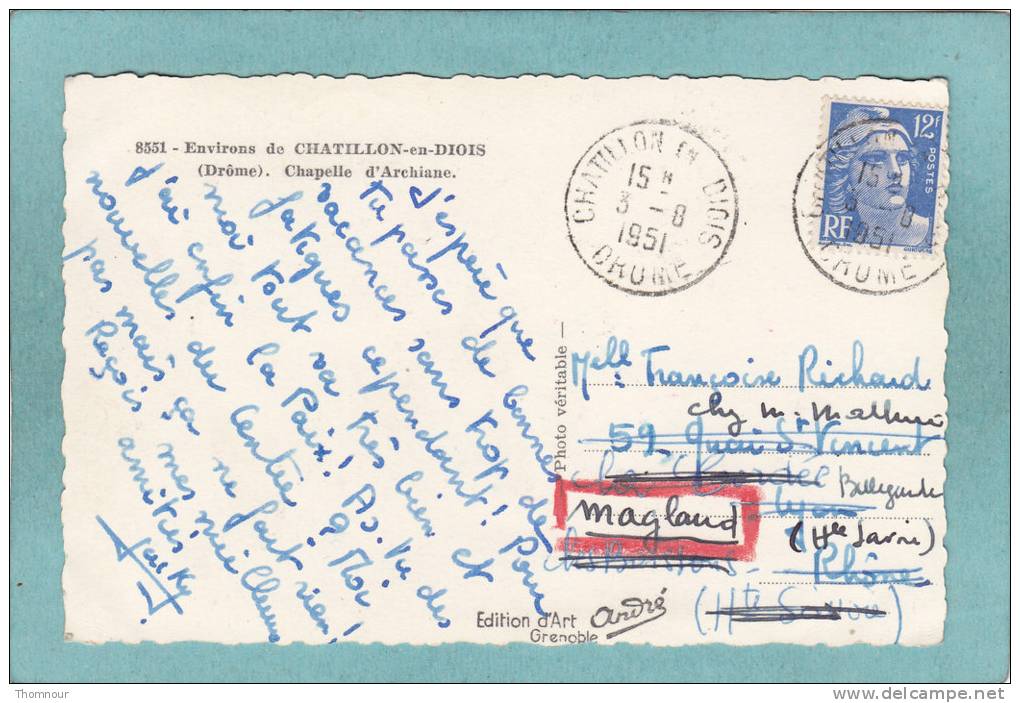 8551 - Environs de CHATILLON-en-DIOIS
(Drôme). Chapelle d'Archiane.
J'espère que
tu passes de bonnes
vacances sans trop de
fatigues cependant! Pour
moi tout va très bien et
la Paix! As-tu des
j'ai enfin
nouvelles du Centre? Moi
pas mais ça ne fait rien!
Reçois mes meilleures
amitiés
CHATILLON EN DIOIS
15 H
3 - 8
1951
DROME
12F
POSTES
RF
15 H
3 - 8
1951
DROME
Photo véritable
Melle Françoise Richard
chez M. Mathieu
59 Quai St Vincent
Bellegarde
Lyon
Magland
(Hte Savoie)
Rhône
(Hte Savoie)
Edition d'Art André
Grenoble
Thomnour
www.delcampe.net